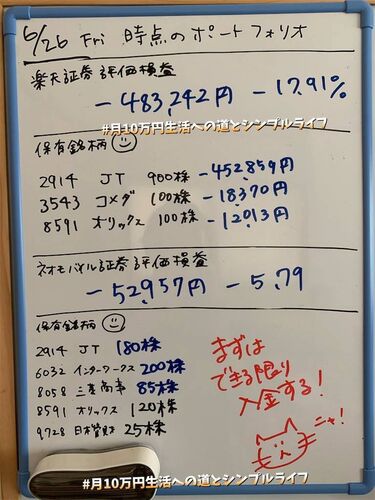 6/26 Fri 時点のポートフォリオ
楽天証券 評価損益
-483,242円 -17.91%
#月10万円生活への道とシンプルライフ
保有銘柄
2914 JT 900株 -452,859円
3543 コメダ 100株 -18,370円
8591 オリックス 100株 -12,013円
ネオモバイル証券 評価損益
-52,957円 -5.79
保有銘柄
2914 JT 180株
6032 インターワークス 200株
8058 三菱商事 85株
8591 オリックス 120株
9728 日本管財 25株
まずは
できる限り
入金する!
ニャ!
#月10万円生活への道とシンプルライフ